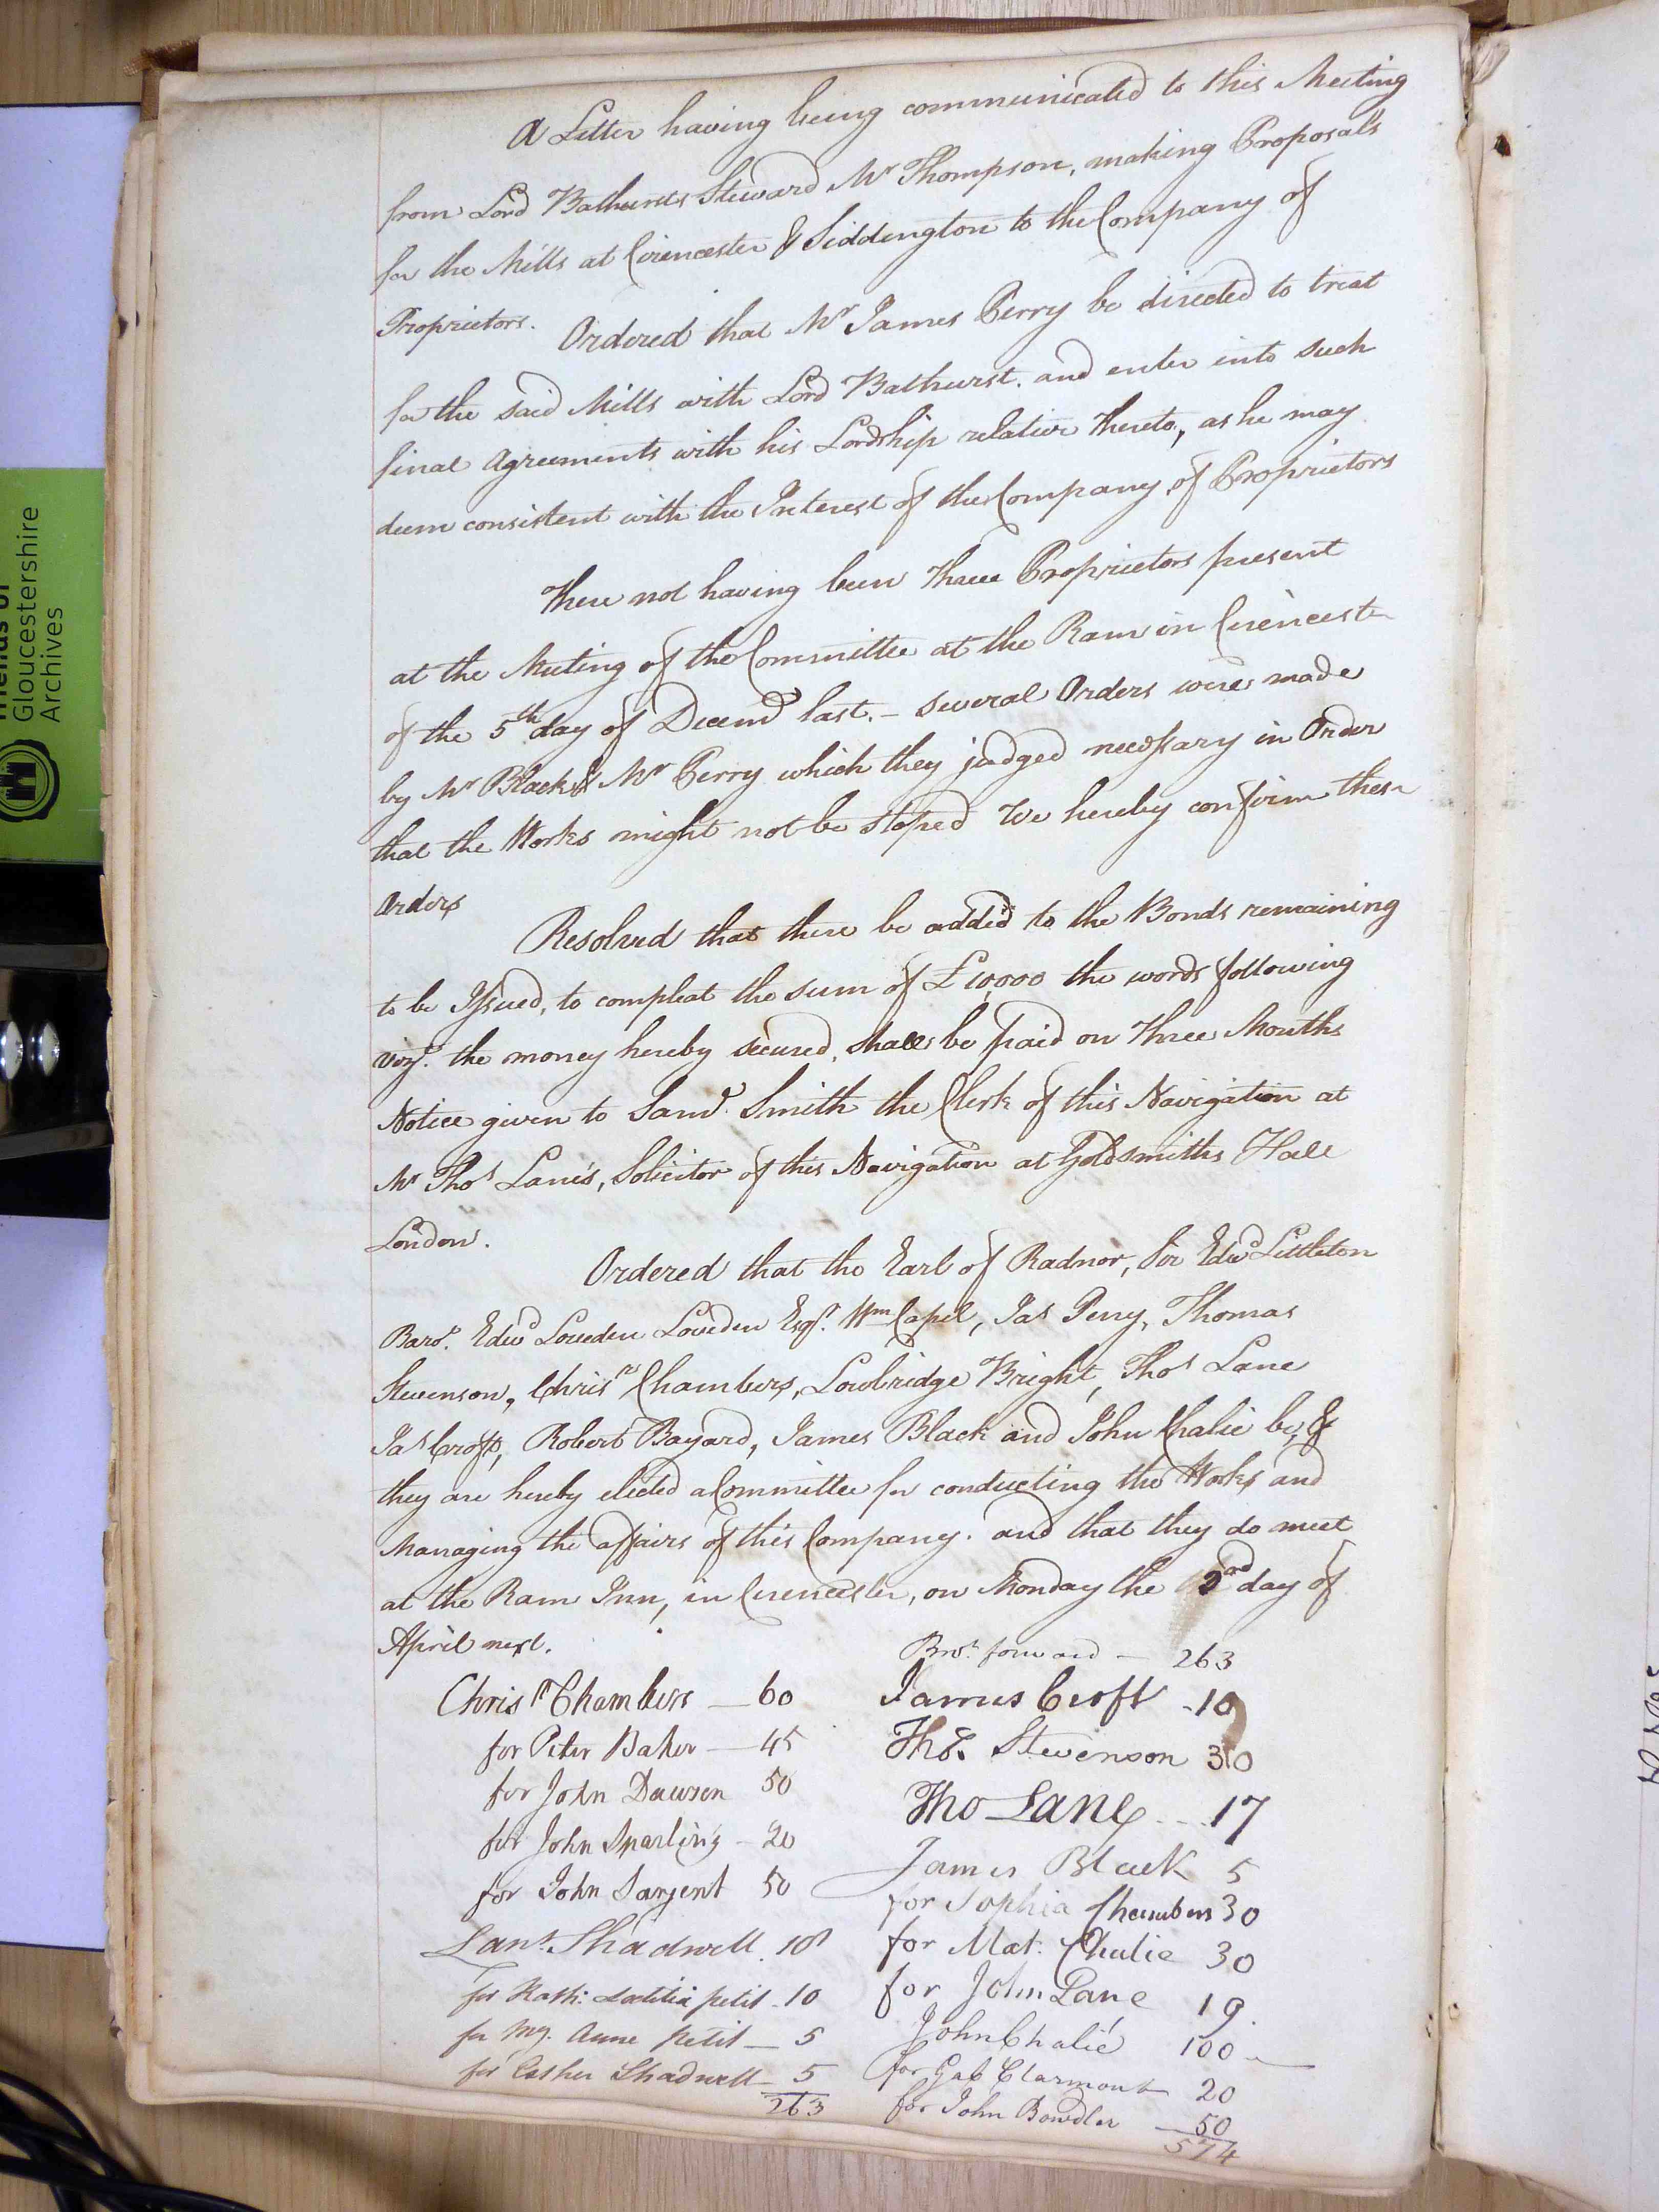 A Letter having being communicated to this Meeting
from Lord Bathursts Steward Mr Thompson, making Proposals
for the Mills at Cirencester & Siddington to the Company of
Proprietors.
Ordered that Mr James Perry be directed to treat
for the said Mills with Lord Bathurst. and enter into such
final Agreements with his Lordship relative thereto, as he may
deem consistent with the Interest of the Company of Proprietors
There not having been three Proprietors present
at the Meeting of the Committee at the Ram in Cirencester
of the 5th day of Decemr last. – several Orders were made
by Mr Black & Mr Perry which they judged necessary in Order
that the Works might not be stoped We hereby confirm these
Orders
Resolved that there be added to the Bonds remaining
to be Issued, to compleat the sum of £10,000 the words following
vizt. the money hereby secured, shall be paid on three Months
Notice given to Saml Smith the Clerk of this Navigation at
Mr Thos Lane's, Solicitor of this Navigation at Goldsmiths Hall
London.
Ordered that the Earl of Radnor, Sir Edwd Littleton
Barot. Edwd Loveden Loveden Esqr. Wm Capel, Jas Perry, Thomas
Stevenson, Christr Chambers, Lowbridge Bright, Thos Lane
Jas Croft, Robert Bayard, James Black and John Chalie be, &
they are hereby elected a Committee for conducting the Works and
Managing the affairs of this Company. and that they do meet
at the Ram Inn, in Cirencester, on Monday the 2nd day of
April next.
Chrisr Chambers – 60
for Peter Baker – 45
for John Dawson 50
for John Sparling – 20
for John Sargent 50
Lant. Shadwell 18
for Kath: Laetitia petit – 10
for My. Anne Petit – 5
for Esther Shadwell – 5
263
Brot. forward – 263
James Croft – 10
Thos. Stevenson 30
Tho Lane – 17
James Black 5
for Sophia Chambers 30
for Mat. Chalie 30
for John Lane 19
John Chalié 100 –
for Gab Clarmont 20
for John Bowdler – 50
574
Gloucestershire
Archives